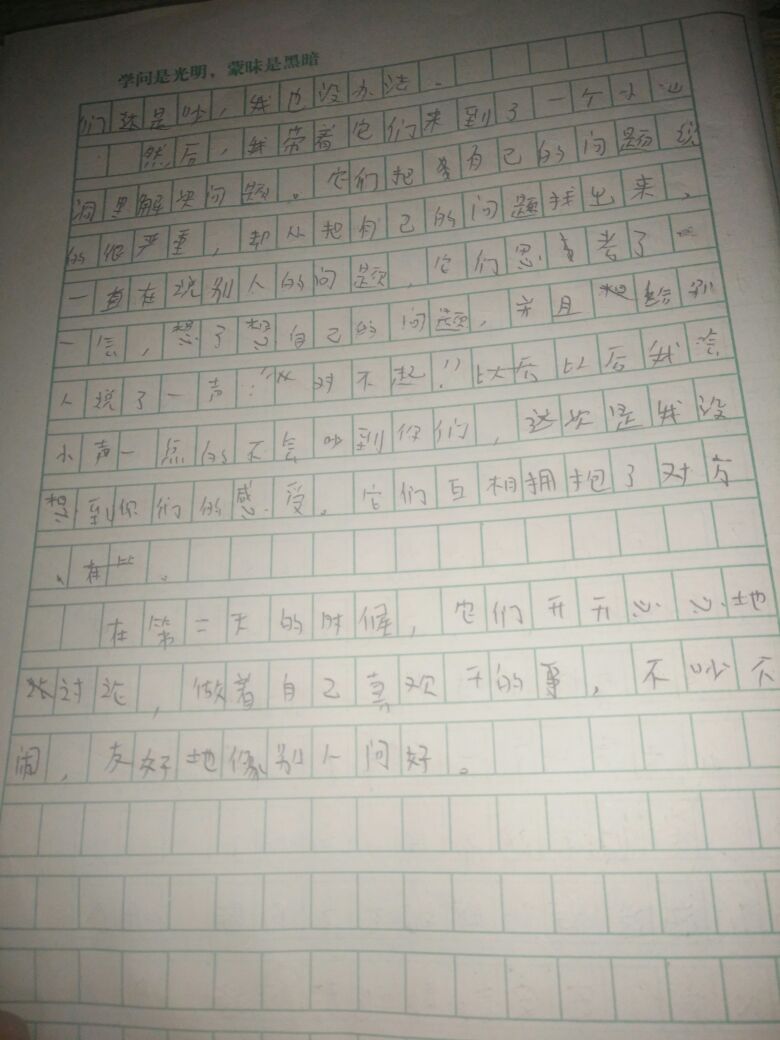 学问是光明，蒙昧是黑暗
们还是吵，我也没办法。
然后，我带着它们来到了一个小山
洞里解决问题。它们把自己的问题说
的很严重，却从把自己的问题找出来，
一直在说别人的问题，它们思考了一
一会，想了想自己的问题，并且给别
人说了一声：“对不起！”以后以后我会
小声一点的不会吵到你们，这次是我没
想到你们的感受。它们互相拥抱了对方
、在⺮。
在第二天的时候，它们开开心心地
讨论，做着自己喜欢干的事，不吵不
闹，友好地像别人问好。